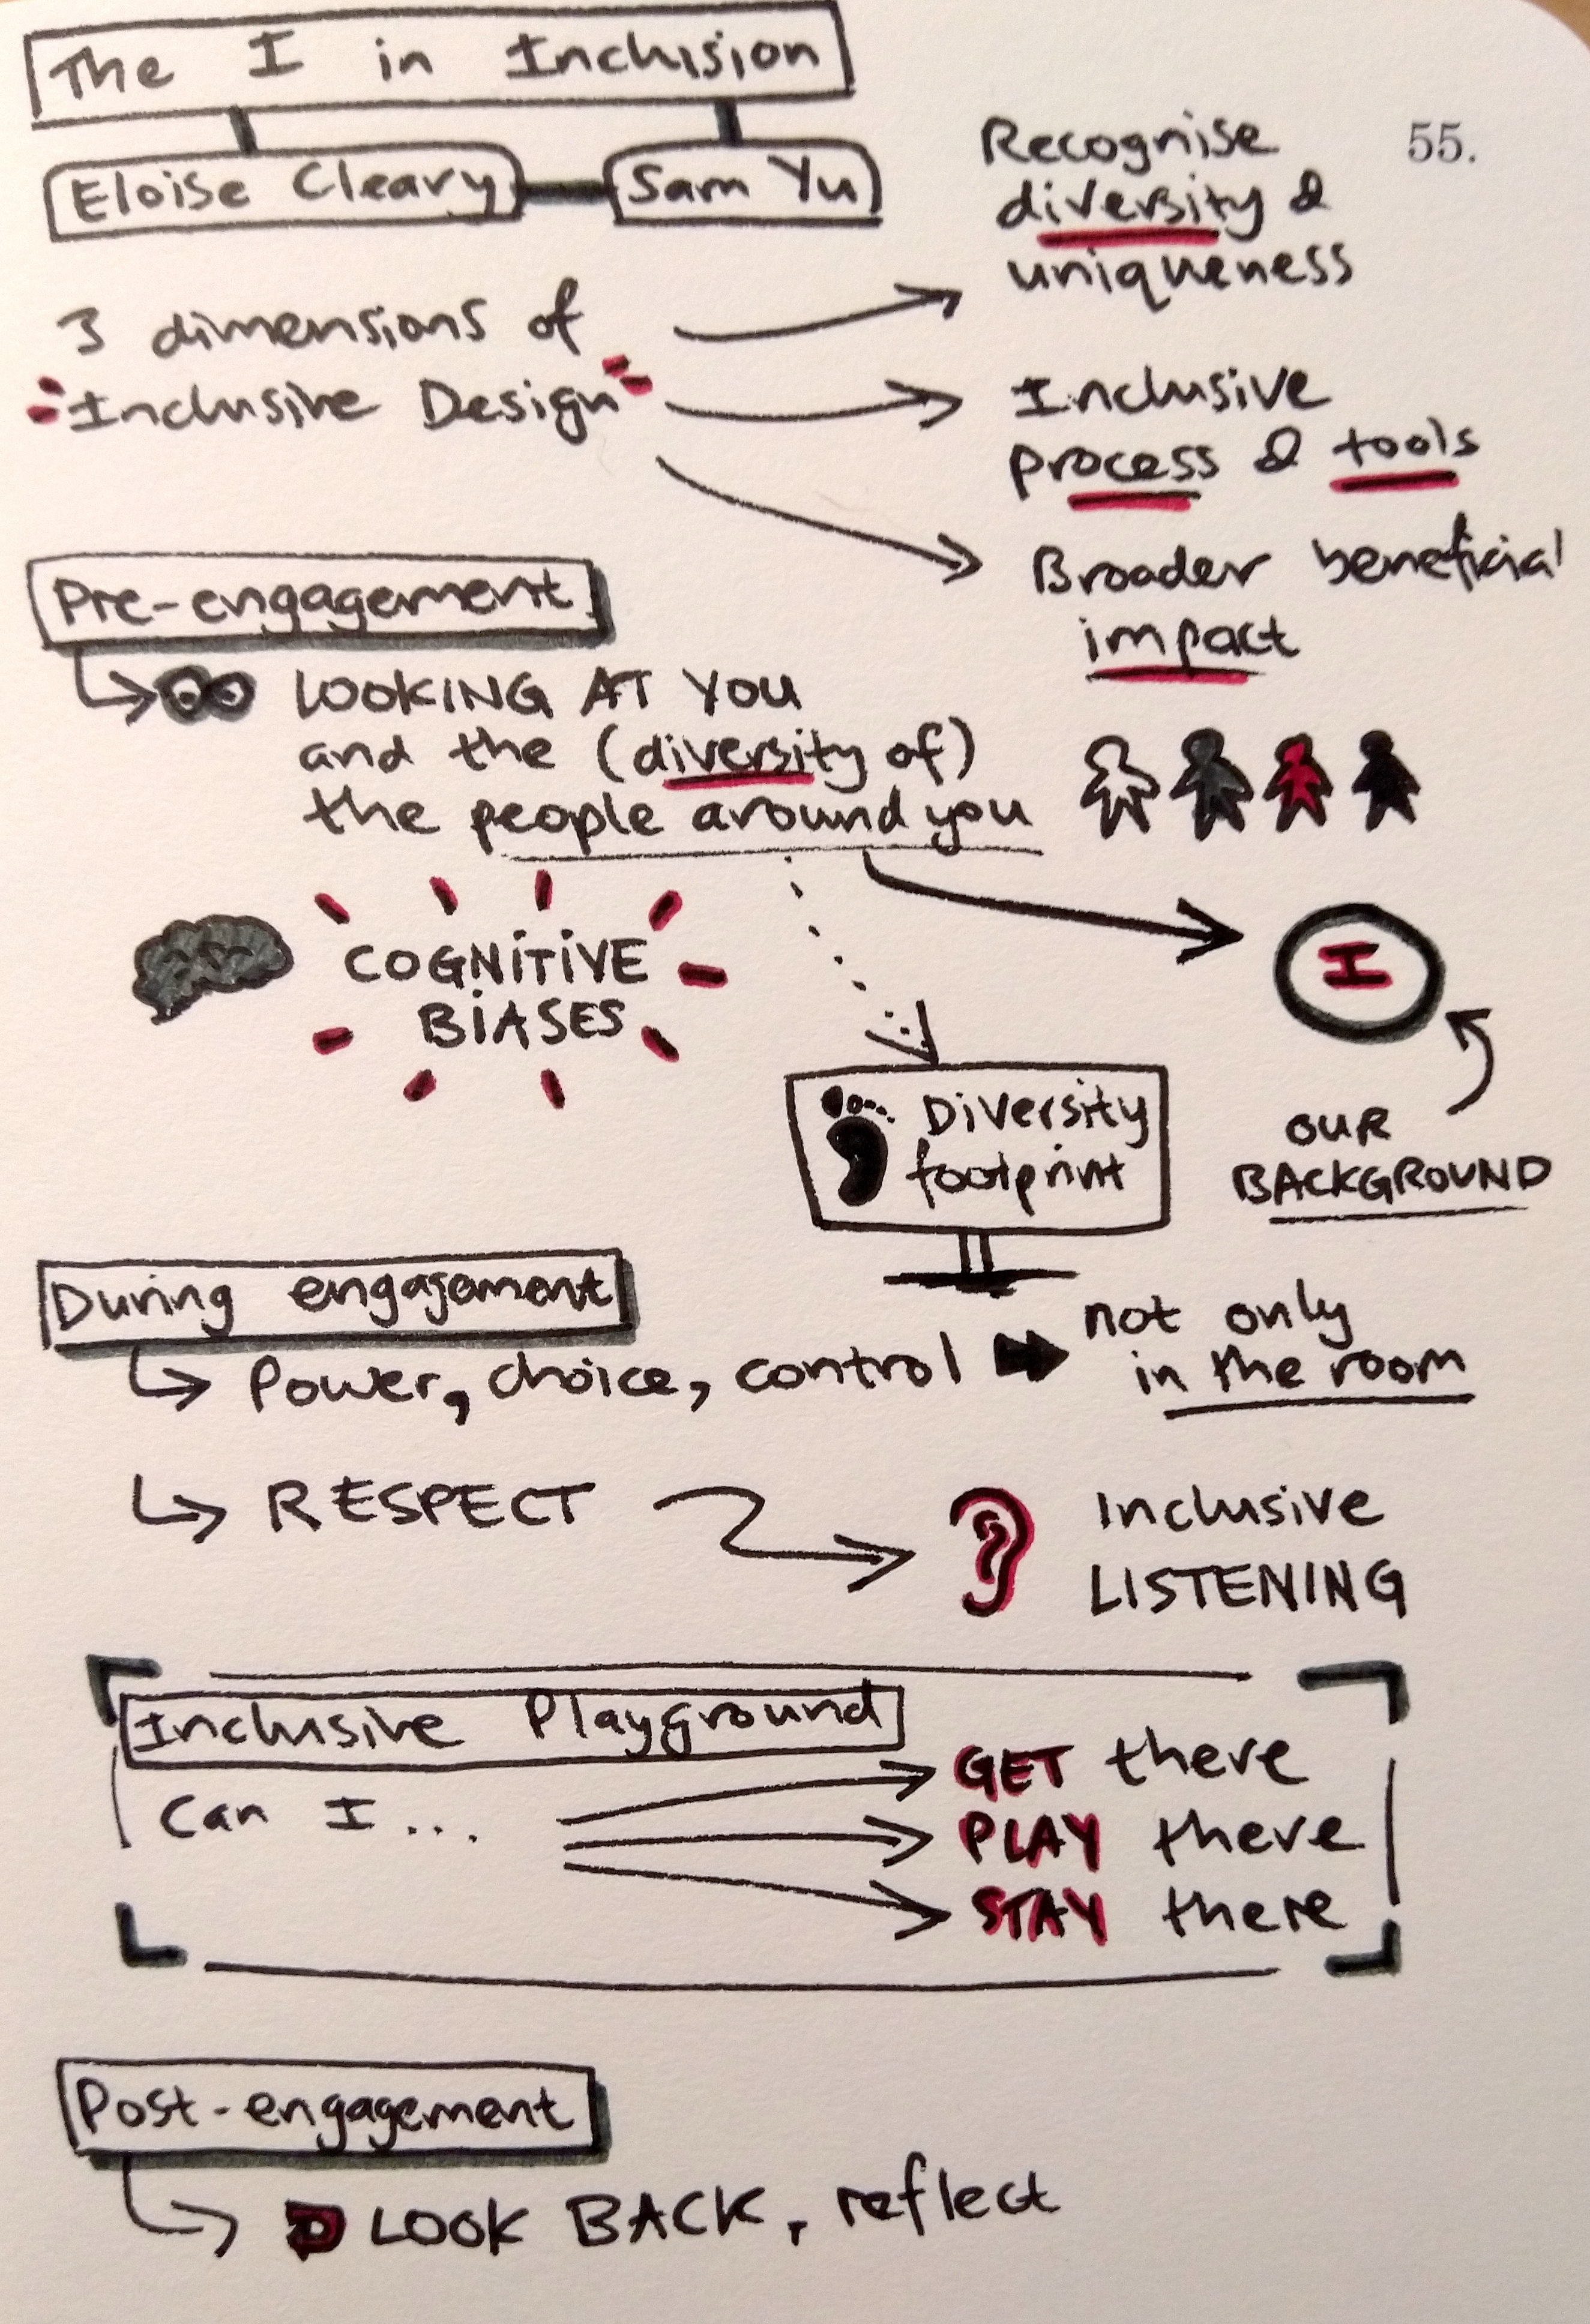 The I in Inclusion
Eloise Cleary
Sam Yu
55.
3 dimensions of
Inclusive Design
Recognise
diversity &
uniqueness
Inclusive
process & tools
Broader beneficial
impact
Pre-engagement
LOOKING AT YOU
and the (diversity of)
the people around you
COGNITIVE
BIASES
I
OUR
BACKGROUND
Diversity
footprint
During engagement
Power, choice, control
not only
in the room
RESPECT
Inclusive
LISTENING
Inclusive Playground
Can I...
GET there
PLAY there
STAY there
Post-engagement
LOOK BACK, reflect